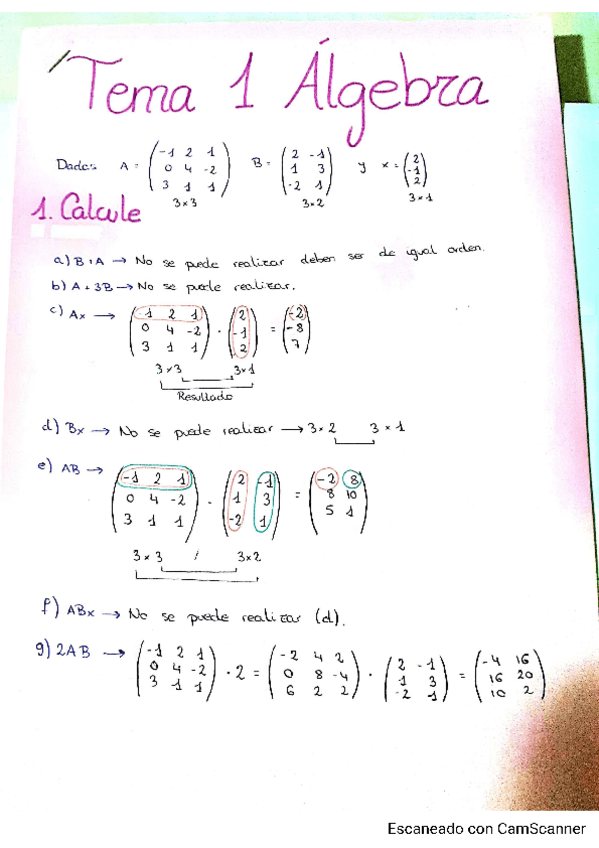 Tema 1 Álgebra
Dadas A = (-1 2 1; 0 4 -2; 3 1 1) B = (2 -1; 1 3; -2 1) y x = (2; -1; 2)
3×3 3×2 3×1
1. Calcule
a) B+A → No se puede realizar deben ser de igual orden.
b) A+3B → No se puede realizar.
c) Ax → (-1 2 1; 0 4 -2; 3 1 1) · (2; -1; 2) = (-2; -8; 7)
3×3 3×1
Resultado
d) Bx → No se puede realizar → 3×2 3×1
e) AB → (-1 2 1; 0 4 -2; 3 1 1) · (2 -1; 1 3; -2 1) = (-2 8; 8 10; 5 1)
3×3 / 3×2
f) ABx → No se puede realizar (d).
g) 2AB → (-1 2 1; 0 4 -2; 3 1 1) · 2 = (-2 4 2; 0 8 -4; 6 2 2) · (2 -1; 1 3; -2 1) = (-4 16; 16 20; 10 2)
Escaneado con CamScanner